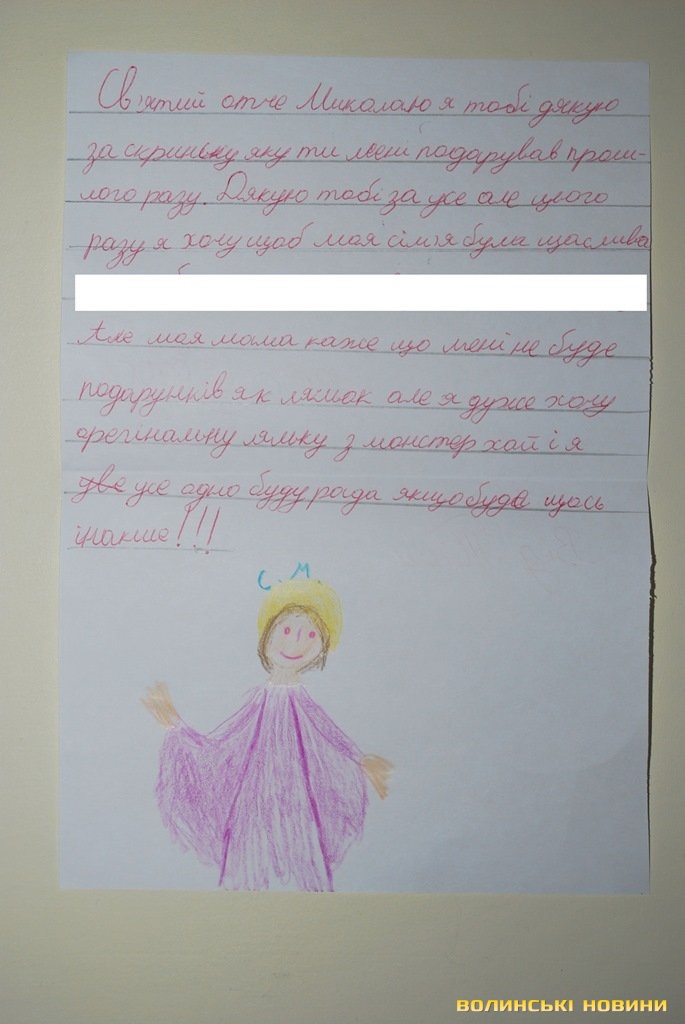 Св'ятий отче Миколаю я тобі дякую
за скриньку яку ти мені подарував прош-
лого разу. Дякую тобі за усе але цього
разу я хочу щоб моя сім'я була щаслива
Але моя мама каже що мені не буде
подарунків як ляльок але я дуже хочу
орегінальну ляльку з монстер хай і я
усе одно буду рада якщо буде щось
інакше!!!
С. М.
ВОЛИНСЬКІ НОВИНИ